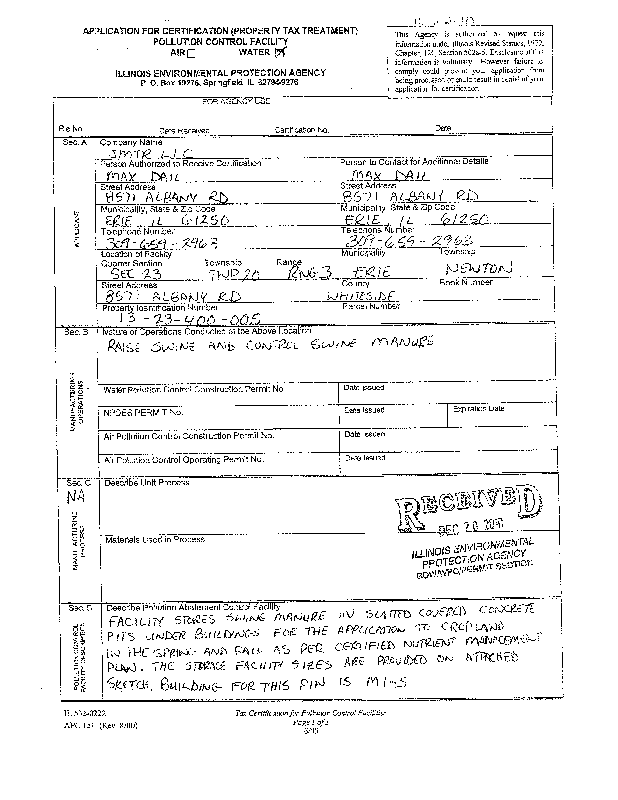 APPLICATION FOR CERTIFICATION (PROPERTY TAX TREATMENT)
POLLUTION CONTROL FACILITY
AIR WATER
ILLINOIS ENVIRONMENTAL PROTECTION AGENCY
P. O. Box 19276, Springfield, IL 62794-9276
This Agency is authorized to request this
information under Illinois Revised Statutes, 1979,
Chapter 120, Section 502a-5. Disclosure of this
information is voluntary. However failure to
comply could prevent your application from
being processed or could result in denial of your
application for certification.
FOR AGENCY USE
File No. Date Received Certification No. Date
Sec. A Company Name
JMTR LLC
Person Authorized to Receive Certification Person to Contact for Additional Details
MAX DAIL MAX DAIL
Street Address Street Address
8571 ALBANY RD 8571 ALBANY RD
Municipality, State & Zip Code Municipality, State & Zip Code
ERIE, IL 61250 ERIE, IL 61250
Telephone Number Telephone Number
309-659-2963 309-659-2963
Location of Facility Municipality Township
Quarter Section Township Range
SEC 23 TWP 20 RNG 3 ERIE NEWTON
Street Address County Book Number
8571 ALBANY RD WHITESIDE
Property Identification Number Parcel Number
13-23-400-005
APPLICANT
Sec. B Nature of Operations Conducted at the Above Location
RAISE SWINE AND CONTROL SWINE MANURE
MANUFACTURING
OPERATIONS
Water Pollution Control Construction Permit No. Date Issued
NPDES PERMIT No. Date Issued Expiration Date
Air Pollution Control Construction Permit No. Date Issued
Air Pollution Control Operating Permit No. Date Issued
Sec. C Describe Unit Process
NA
MANUFACTURING
PROCESS
Materials Used in Process
RECEIVED
DEC 20
ILLINOIS ENVIRONMENTAL
PROTECTION AGENCY
BOW/WPC/PERMIT SECTION
Sec. D Describe Pollution Abatement Control Facility
FACILITY STORES SWINE MANURE IN SLATTED COVERED CONCRETE
PITS UNDER BUILDINGS FOR THE APPLICATION TO CROPLAND
IN THE SPRING AND FALL AS PER CERTIFIED NUTRIENT MANAGEMENT
PLAN. THE STORAGE FACILITY SIZES ARE PROVIDED ON ATTACHED
SKETCH. BUILDING FOR THIS PIN IS M1-5
POLLUTION CONTROL
FACILITY DESCRIPTION
IL 532-0222 Tax Certification for Pollution Control Facilities
Page 1 of 2
APC 151 (Rev. 8/00)